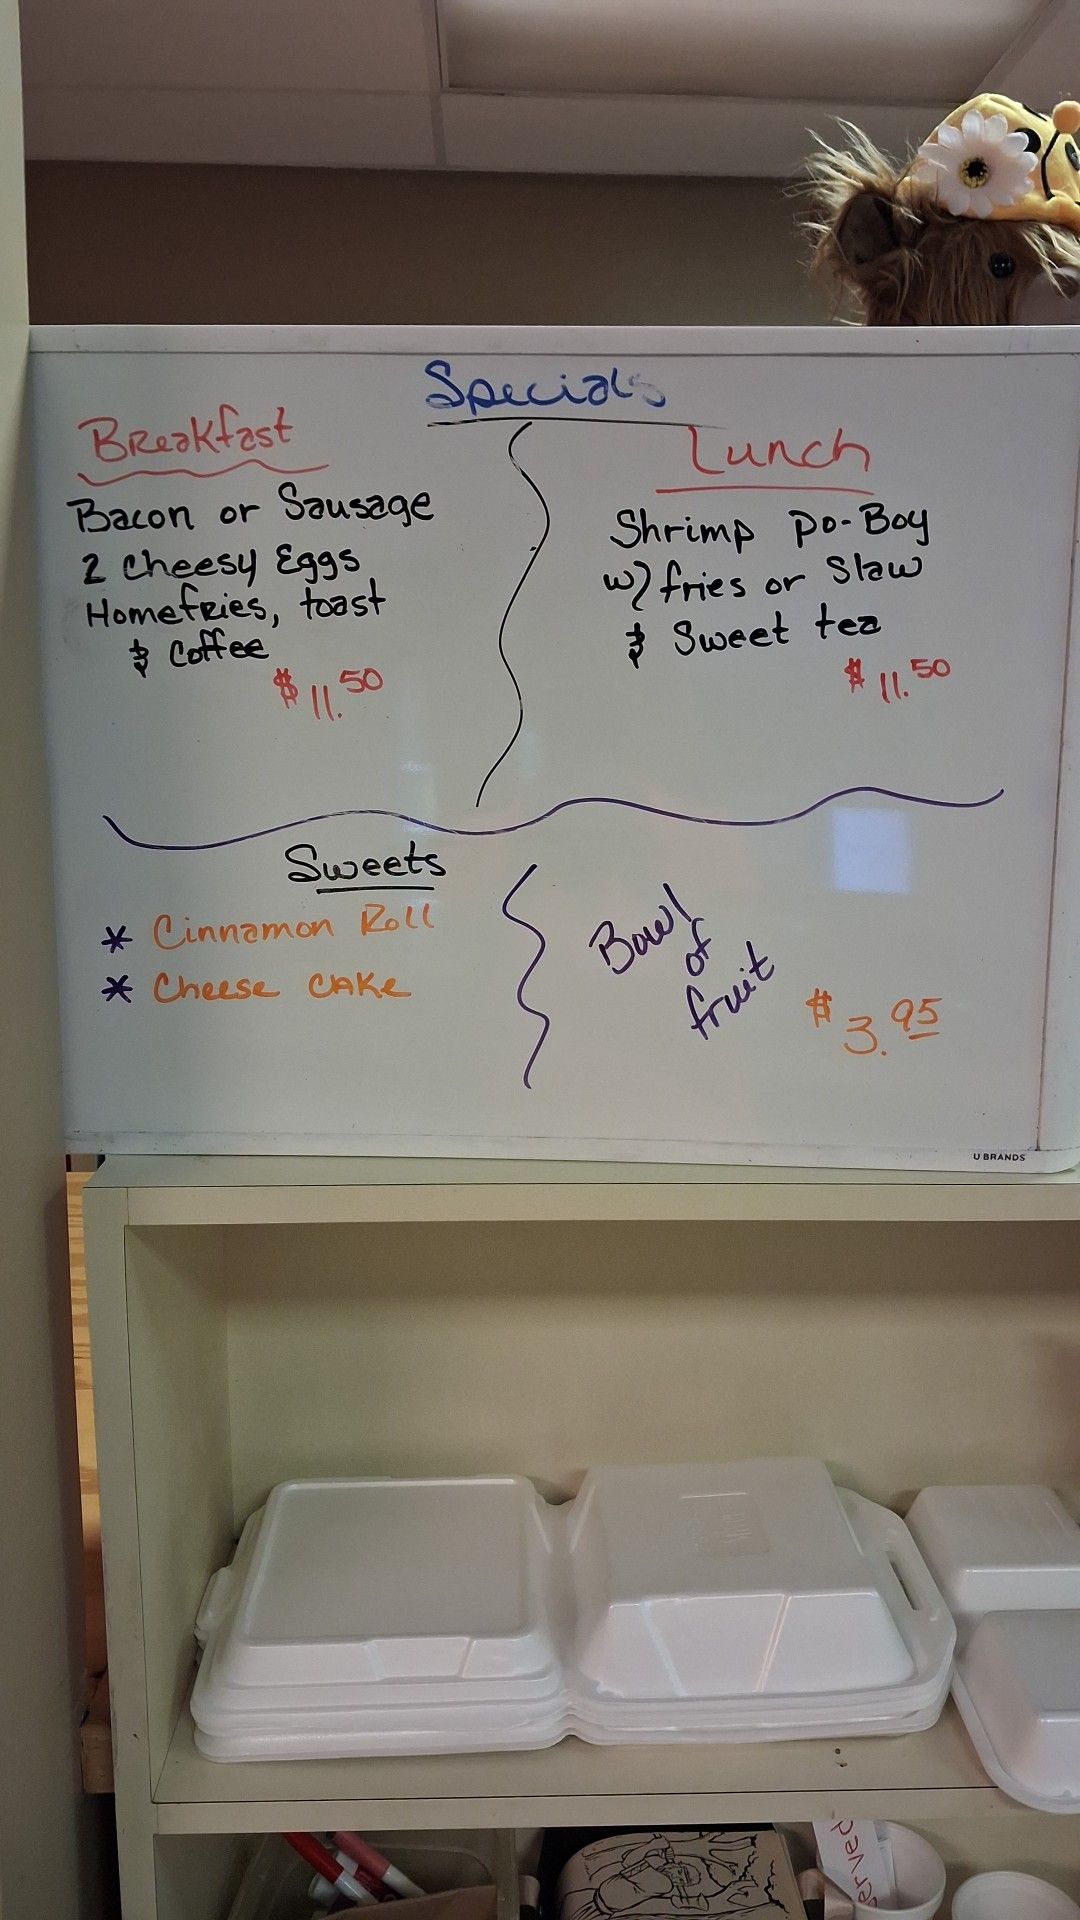 Specials
Breakfast
Bacon or Sausage
2 Cheesy Eggs
Homefries, toast
& Coffee
$11.50
Lunch
Shrimp Po-Boy
w/ fries or Slaw
& Sweet tea
$11.50
Sweets
* Cinnamon Roll
* Cheese cake
Bowl
of
fruit
$3.95
U BRANDS